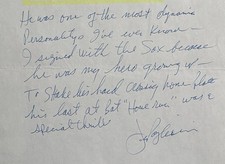 He was one of the most dynamic
Personality I've ever Known -
I signed with the Sox because
he was my hero growing up -
To Shake his hand crossing home plate
his last at bat "Home run" was a
special thrill